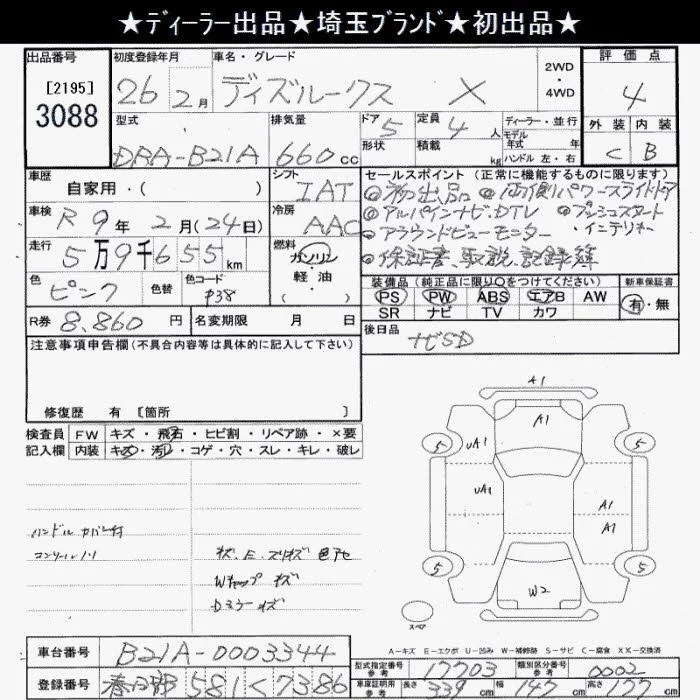 ★ディーラー出品★埼玉ブランド★初出品★
出品番号
[2195]
3088
初度登録年月
26年2月
車名・グレード
ディズルークス X
2WD
・
4WD
評価点
4
外装 内装
C B
型式
DBA-B21A
排気量
660cc
ドア 5
形状
定員 4人
積載 kg
ディーラー・並行
モデル
年式 年
ハンドル 左・右
車歴
自家用・( )
シフト
IAT
セールスポイント(正常に機能するものに限ります)
◎初出品 ◎両側パワースライドドア
◎アルパインナビ・DTV ◎プッシュスタート
◎アラウンドビューモニター ・インテリキー
◎保証書、取説、記録簿
車検
R9年2月(24日)
冷房
AAC
走行
5万9千655km
燃料
ガソリン
軽・油
( )
色
ピンク
色替
色コード
P38
装備品(純正品に限り○をつけてください)
PS PW ABS エアB AW
SR ナビ TV カワ
新車保証書
有・無
R券 8,860円
名変期限 月 日
後日品
ナビSD
注意事項申告欄(不具合内容等は具体的に記入して下さい)
修復歴 有 [箇所 ]
検査員
記入欄
FW キズ・飛石・ヒビ割・リペア跡・×要
内装 キズ・汚レ・コゲ・穴・スレ・キレ・破レ
ハンドル カバー付
キズ、E、スリキズ 色アセ
Wキャップ キズ
Dミラー キズ
A1
A1
UA1
UA1
A1
A1
W2
5
5
5
5
スペア
A-キズ E-エクボ U-凹み W-補修跡 S-サビ C-腐食 XX-交換済
車台番号 B21A-0003344
登録番号 春日部 581 く 7386
型式指定番号
参考
17703
類別区分番号
参考
0002
車庫証明用
参考
長さ 339cm 幅 147cm 高さ 177cm